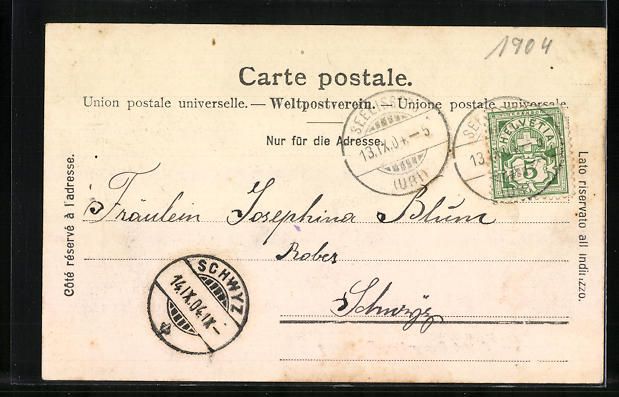 1904
Carte postale.
Union postale universelle. — Weltpostverein. — Unione postale universale.
Nur für die Adresse.
13.IX.04.–5
(URI)
13.
HELVETIA
5
Côté réservé à l'adresse.
Lato riservato all indirizzo.
Fräulein Josephina Blum
Robes
Schwyz
SCHWYZ
14.IX.04.IX–